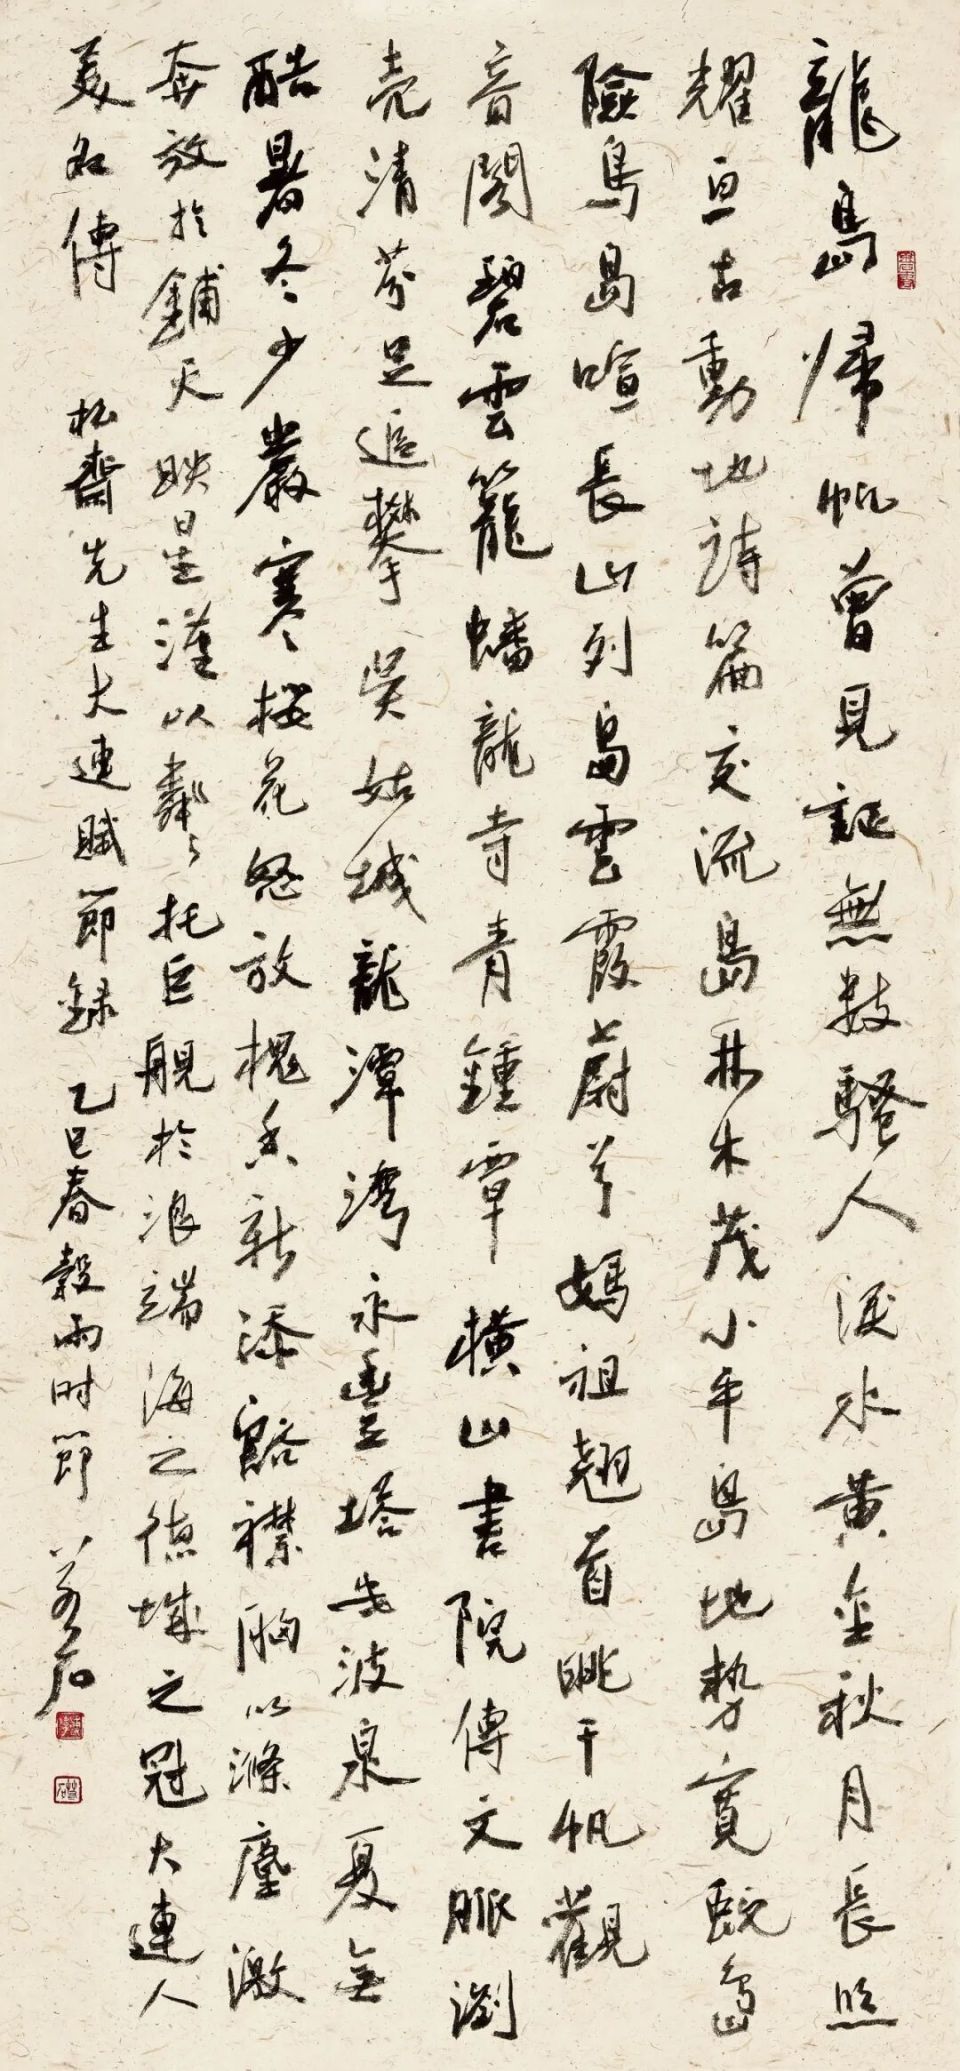 龍島歸帆曾見証無數騷人淚水黃金秋月長照
耀亘古動地詩篇交流島林木茂小平島地勢寬蜿島
險鳥島喧長山列島雲霞蔚兮媽祖翹首眺千帆觀
音閣碧雲籠蟠龍寺青鍾覃橫山書院傳文脈瀏
亮清芬足追攀吳姑城龍潭灣永豐塔安波泉夏無
酷暑冬少嚴寒櫻花怒放槐香新添豁襟胸以滌塵激
奔放於鋪天映星漢以粼粼托巨舰於浪端海之德城之冠大連人
美名傳
松齋先生大連賦節録
乙巳春穀雨时節
若石